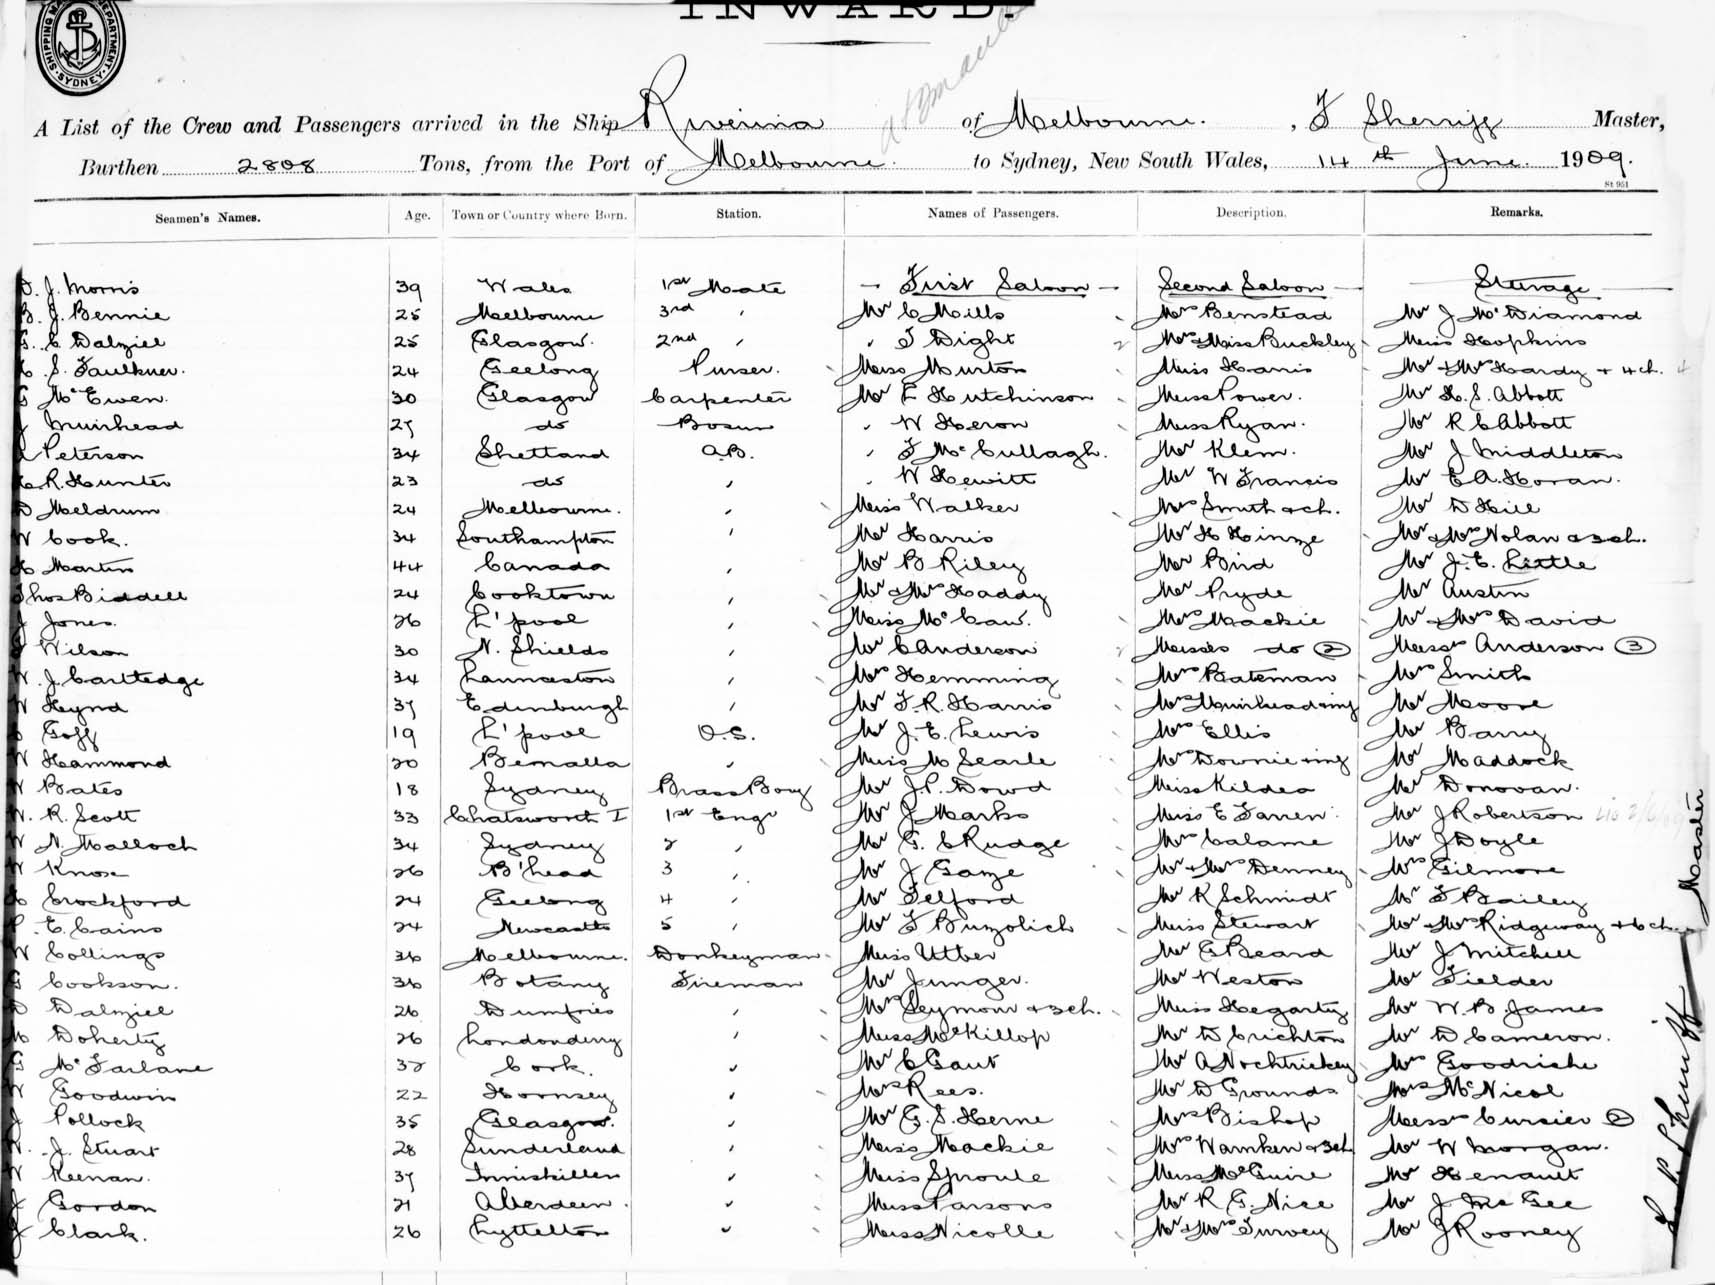 INWARD.
SHIPPING DEPARTMENT SYDNEY
A List of the Crew and Passengers arrived in the Ship Riverina of Melbourne. , F Sherriff Master,
Burthen 2808 Tons, from the Port of Melbourne. to Sydney, New South Wales, 14th June 1909.
St 951
Seamen's Names. Age. Town or Country where Born. Station. Names of Passengers. Description. Remarks.
D. J. Morris 39 Wales 1st Mate - First Saloon - Second Saloon - Steerage
B. J. Bennie 25 Melbourne 3rd ' Mr C Mills Mrs Benstead Mr J McDiamond
G. C Dalziel 25 Glasgow. 2nd ' ' T Dight 2 Mrs & Miss Buckley Miss Hopkins
S. Faulkner. 24 Geelong Purser. Miss Murton Miss Harris Mr & Mrs Hardy + 4 ch. 4
G McEwen. 30 Glasgow Carpenter Mr L Hutchinson Miss Power. Mr H. S. Abbott
J Muirhead 27 do Bosun ' W Heron Miss Ryan. Mr R C Abbott
Peterson 34 Shetland A.B. ' F McCullagh. Mr Klem. Mr J Middleton
R. Hunter 23 do ' ' W Hewitt Mr W Francis Mr E A. Horan.
D Meldrum 24 Melbourne. ' Miss Walker Mrs Smith & ch. Mr D Hill
W Cook. 34 Southampton ' Mr Harris Mr H Hinze Mr & Mrs Nolan & 3 ch.
H Martin 44 Canada ' Mr B Riley Mr Bird Mr J. E. Little
Thos Biddell 24 Cooktown ' Mr & Mrs Haddy Mr Pryde Mr Austin
J Jones. 26 L'pool ' Miss McCaw. Mrs Mackie Mr & Mrs David
Wilson 30 N. Shields ' Mr C Anderson 2 Misses do (2) Messrs Anderson (3)
W. J. Cartledge 34 Launceston ' Mrs Hemming Mrs Bateman Mrs Smith
W Hynd 37 Edinburgh ' Mr F. R. Harris Mrs Muirhead & inf Mr Moore
Goff 19 L'pool O.S. Mr J. E. Lewis Mrs Ellis Mr Barry
W Hammond 20 Benalla ' Miss M Searle Mrs Downie & inf Mr Maddock
W Bates 18 Sydney Brass Boy Mr J. P. Dowd Miss Kildea Mr Donovan.
W. R. Scott 33 Chatsworth I 1st Engr Mr J Marks Miss E Farren. Mr J Robertson
W N. Malloch 34 Sydney 2 ' Mr G. C Rudge Mr Calame Mr J Doyle
W Knox 26 B'head 3 ' Mr J Gaze Mr & Mrs Denney Mrs Gilmore
H Crockford 24 Geelong 4 ' Mr Telford Mr K Schmidt Mr F Bailey
P. E. Cains 24 Newcastle 5 ' Mr F Buzolich Miss Stewart Mr & Mrs Ridgeway + 6 ch.
W Collings 36 Melbourne. Donkeyman Miss Utber Mr G Beard Mr J Mitchell
G Cookson. 36 Botany Fireman Mr Junger. Mr Weston Mr Fielder
D Dalziel 26 Dumfries ' Mrs Seymour & 3 ch. Miss Hegarty Mr W. B. James
M Doherty 26 Londonderry ' Miss McKillop Mr D Crichton Mr D Cameron.
G McFarlane 32 Cork. ' Mr C Gaut Mr A Nochtrickey Mrs Goodriche
W Goodwin 22 Hornsey ' Mrs Rees. Mr D Grounds Mrs McNicol
J Pollock 35 Glasgow. ' Mr G. S. Herne Mrs Bishop Messrs Cursier (2)
W. J. Stuart 28 Sunderland ' Miss Mackie Mrs Wamken & 3 ch Mr W Morgan.
W Keenan. 37 Inniskillen ' Miss Sproule Miss McGuire Mr Henault
J Gordon 21 Aberdeen. ' Miss Parsons Mr R G. Nice Mr J McGee
J Clark. 26 Lyttelton ' Miss Nicolle Mr & Mrs Turvey Mr J Rooney
Master